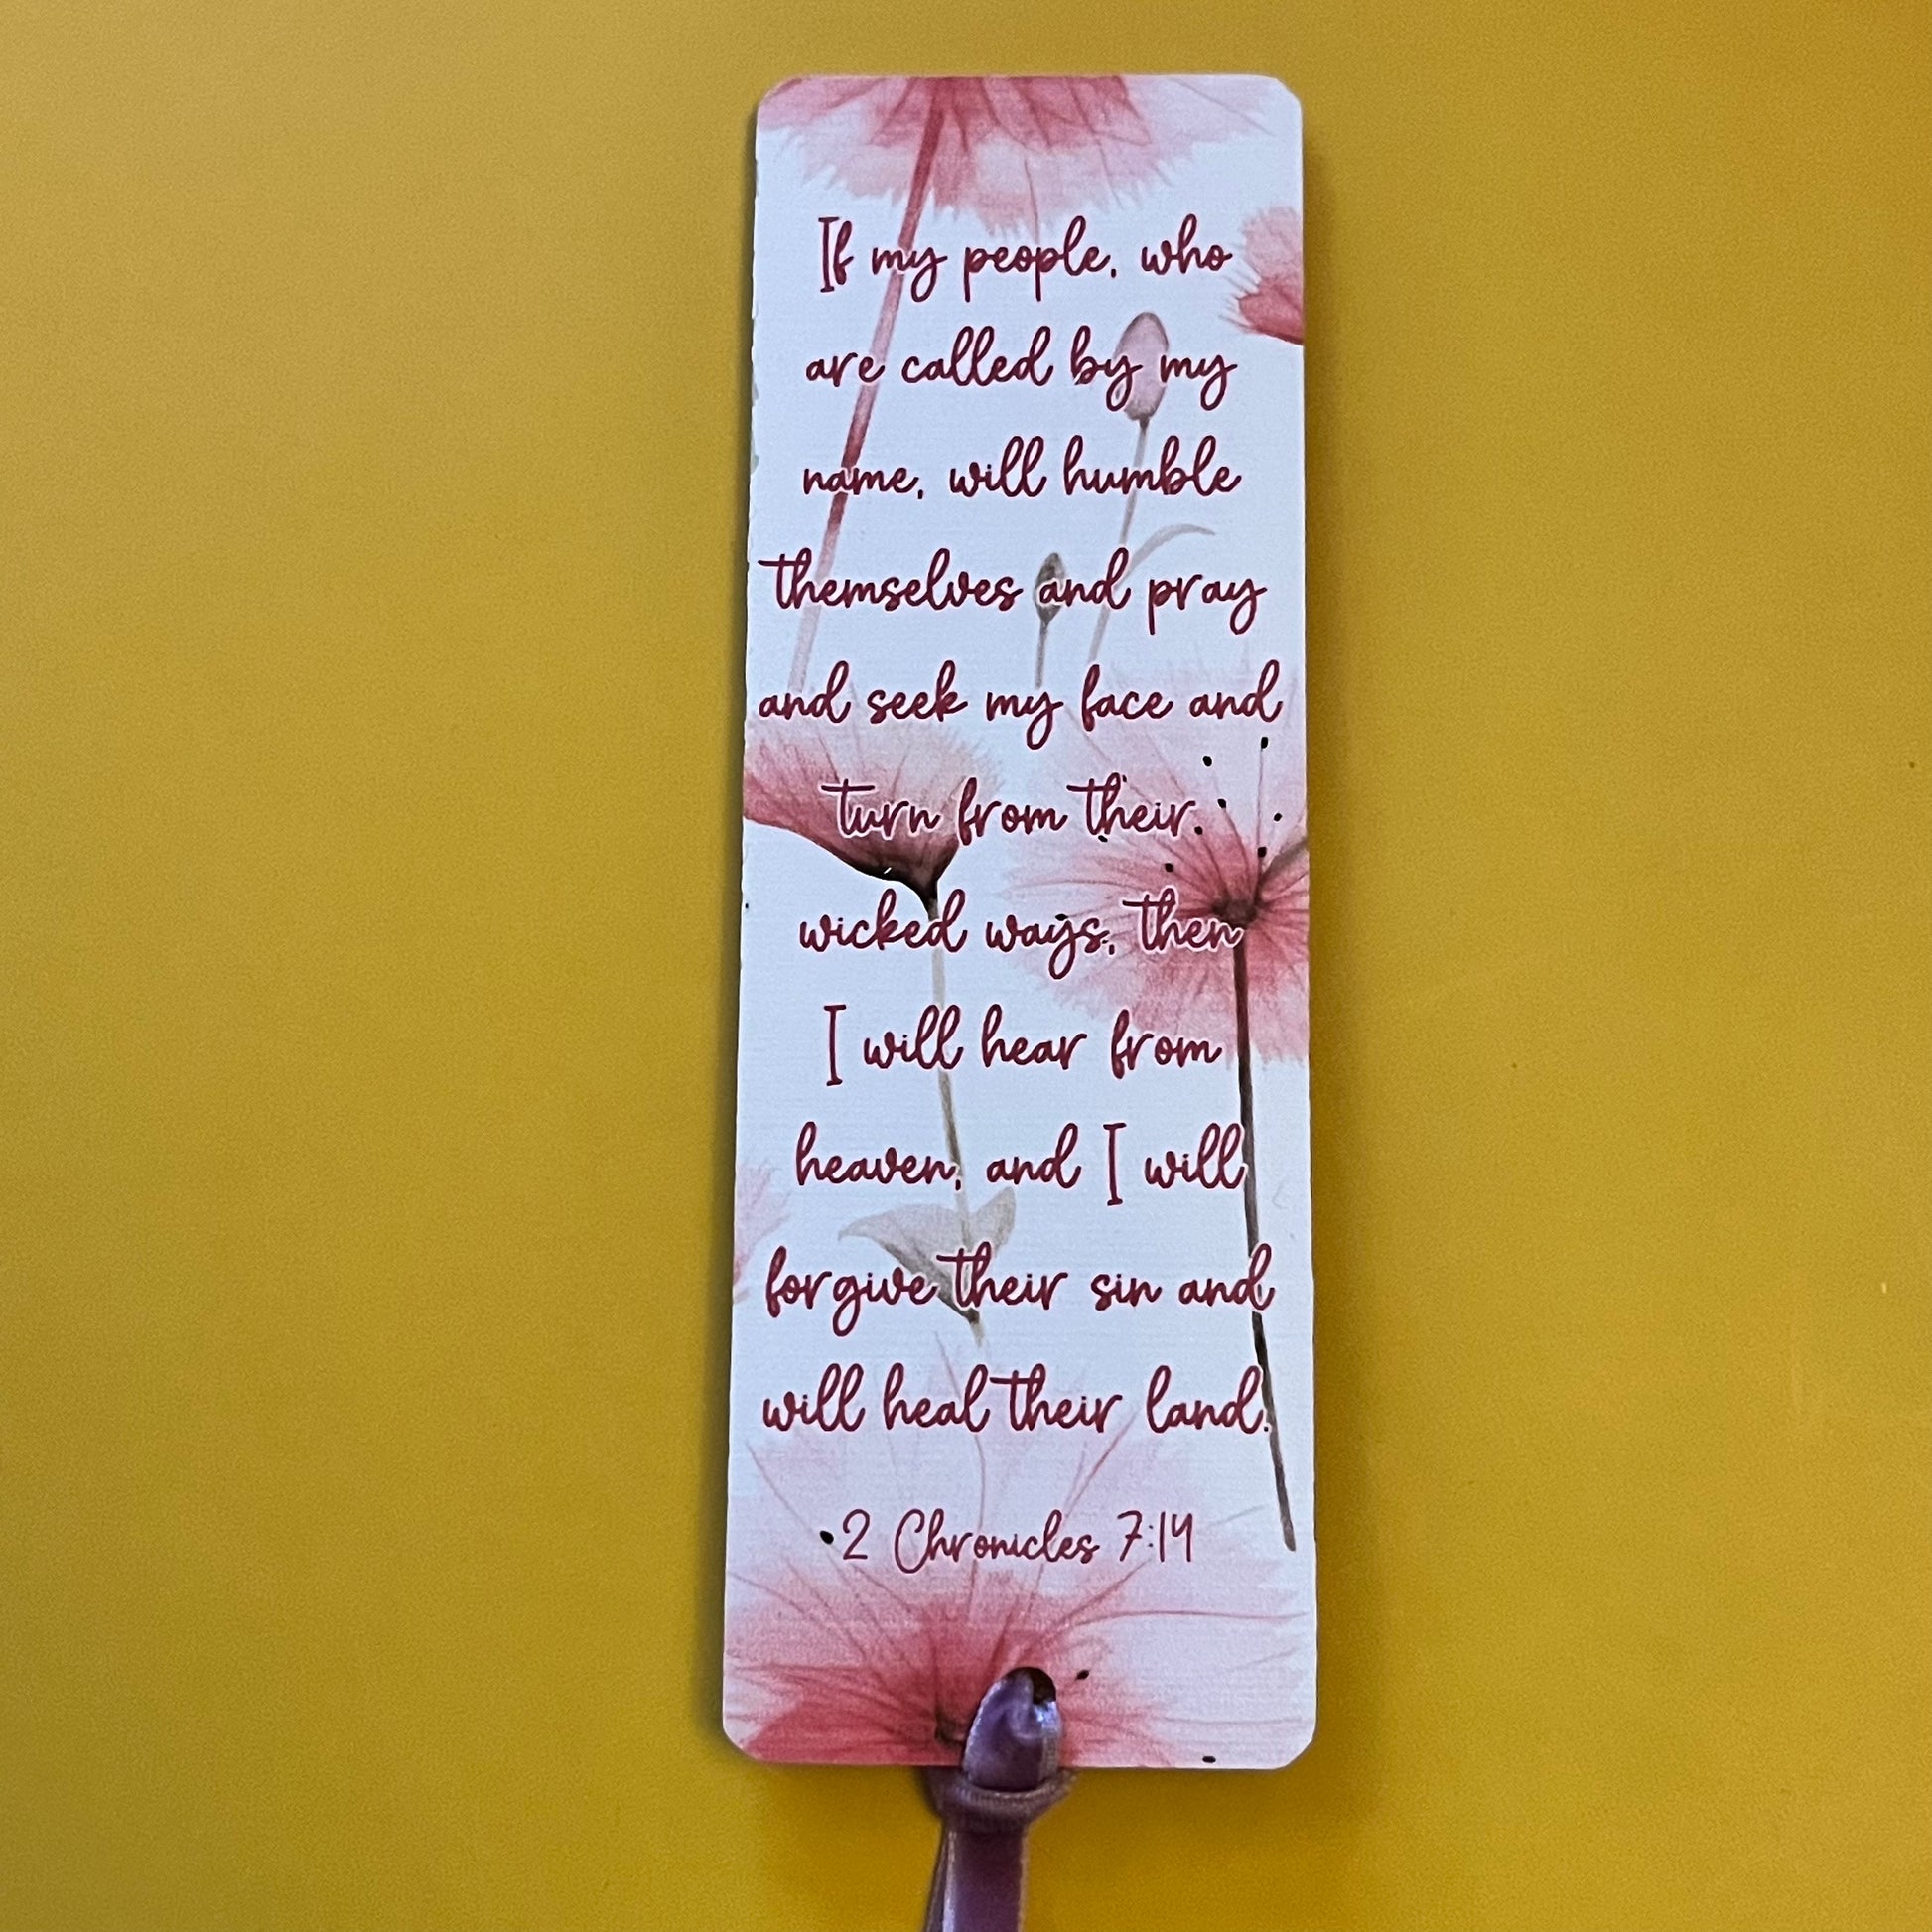 If my people, who
are called by my
name, will humble
themselves and pray
and seek my face and
turn from their
wicked ways, then
I will hear from
heaven, and I will
forgive their sin and
will heal their land.
2 Chronicles 7:14